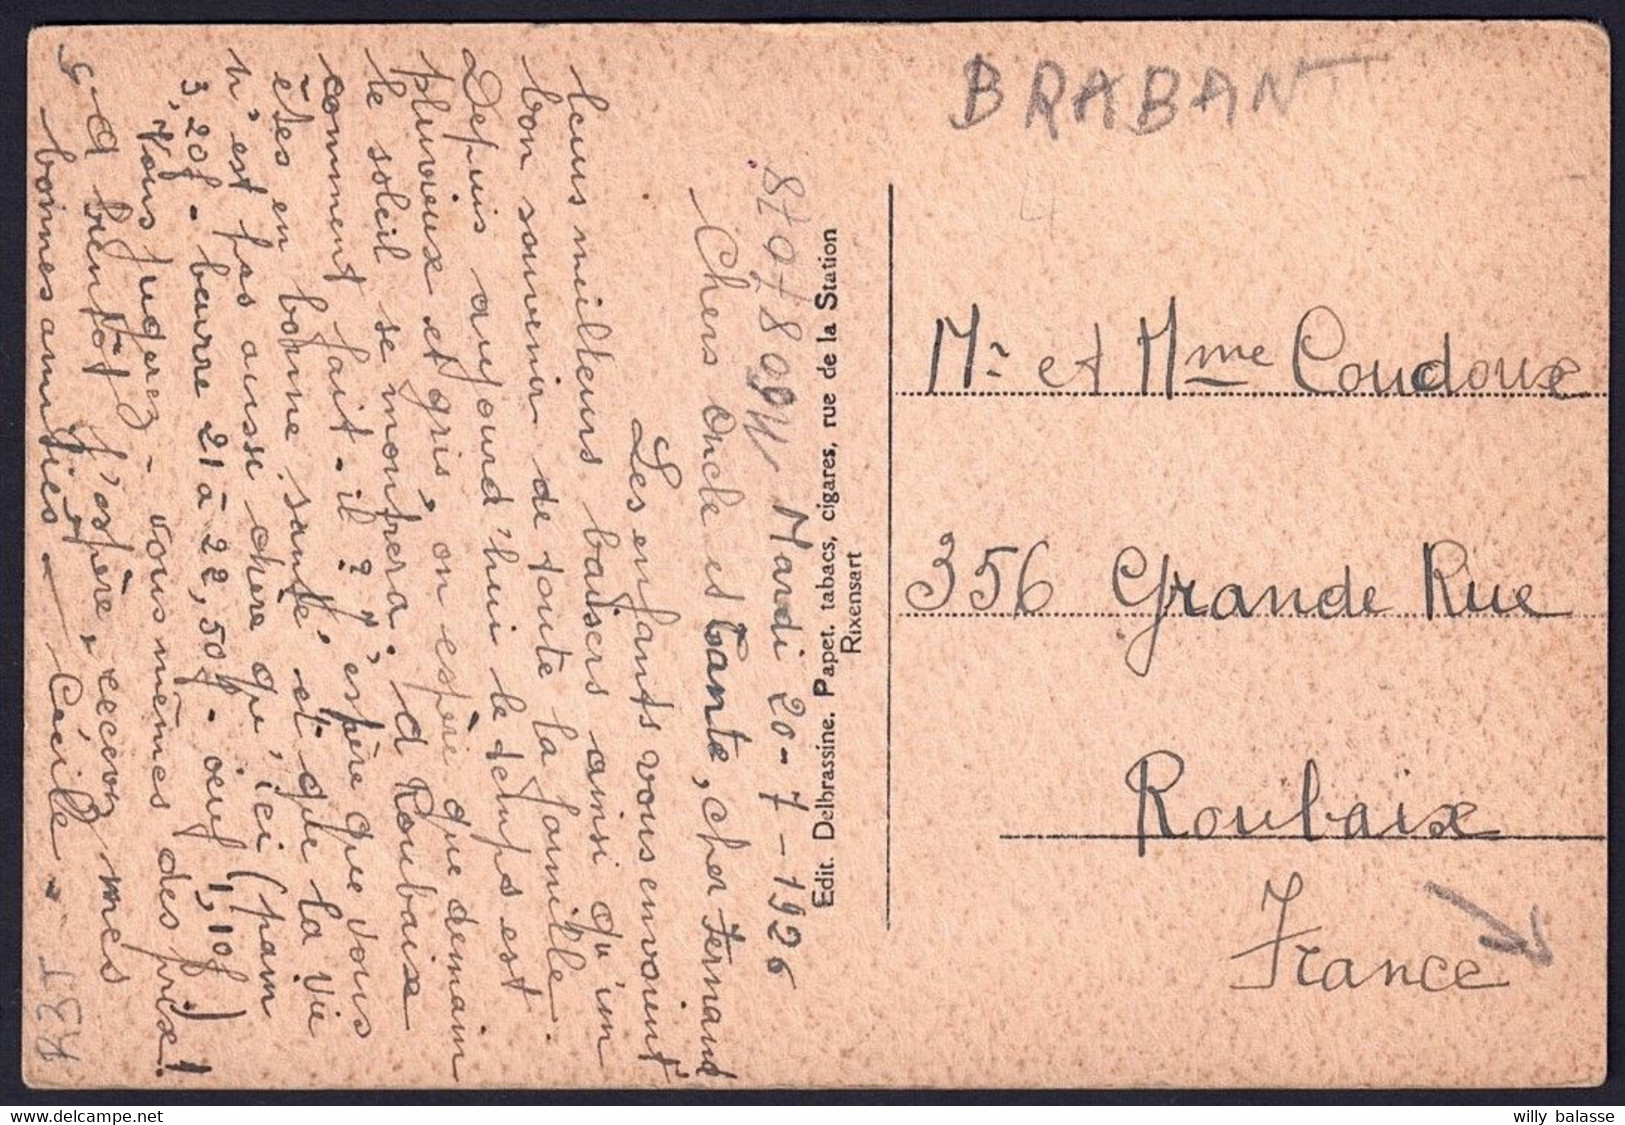 BRABANT
4
8707809W Mardi 20-7-1926
Chers Oncle et Tante, cher Fernand
Les enfants vous envoient
leurs meilleurs baisers ainsi qu'un
bon souvenir de toute la famille.
Depuis aujourd'hui le temps est
pluvieux et gris, on espère que demain
le soleil se montrera. A Roubaix
comment fait-il ? J'espère que vous
êtes en bonne santé et que la vie
n'est pas aussi chère qu'ici (pain
3,20f - beurre 21 à 22,50f - oeuf 1,10f)
Vous jugerez - vous mêmes des prix!
A bientôt j'espère, recevez mes
bonnes amitiés - Cécile.
Edit. Delbrassine. Papet. tabacs, cigares, rue de la Station
Rixensart
Mr et Mme Coudoux
356 Grande Rue
Roubaix
France
willy balasse